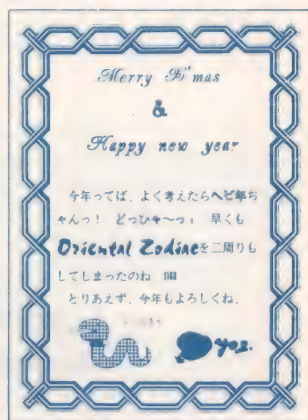 Merry X'mas
&
Happy new year
今年ってば、よく考えたらヘビ年ぢ
ゃんっ! どっひゃ〜っ; 早くも
Oriental Zodiacを二周りも
してしまったのね
とりあえず、今年もよろしくね。
yoz.